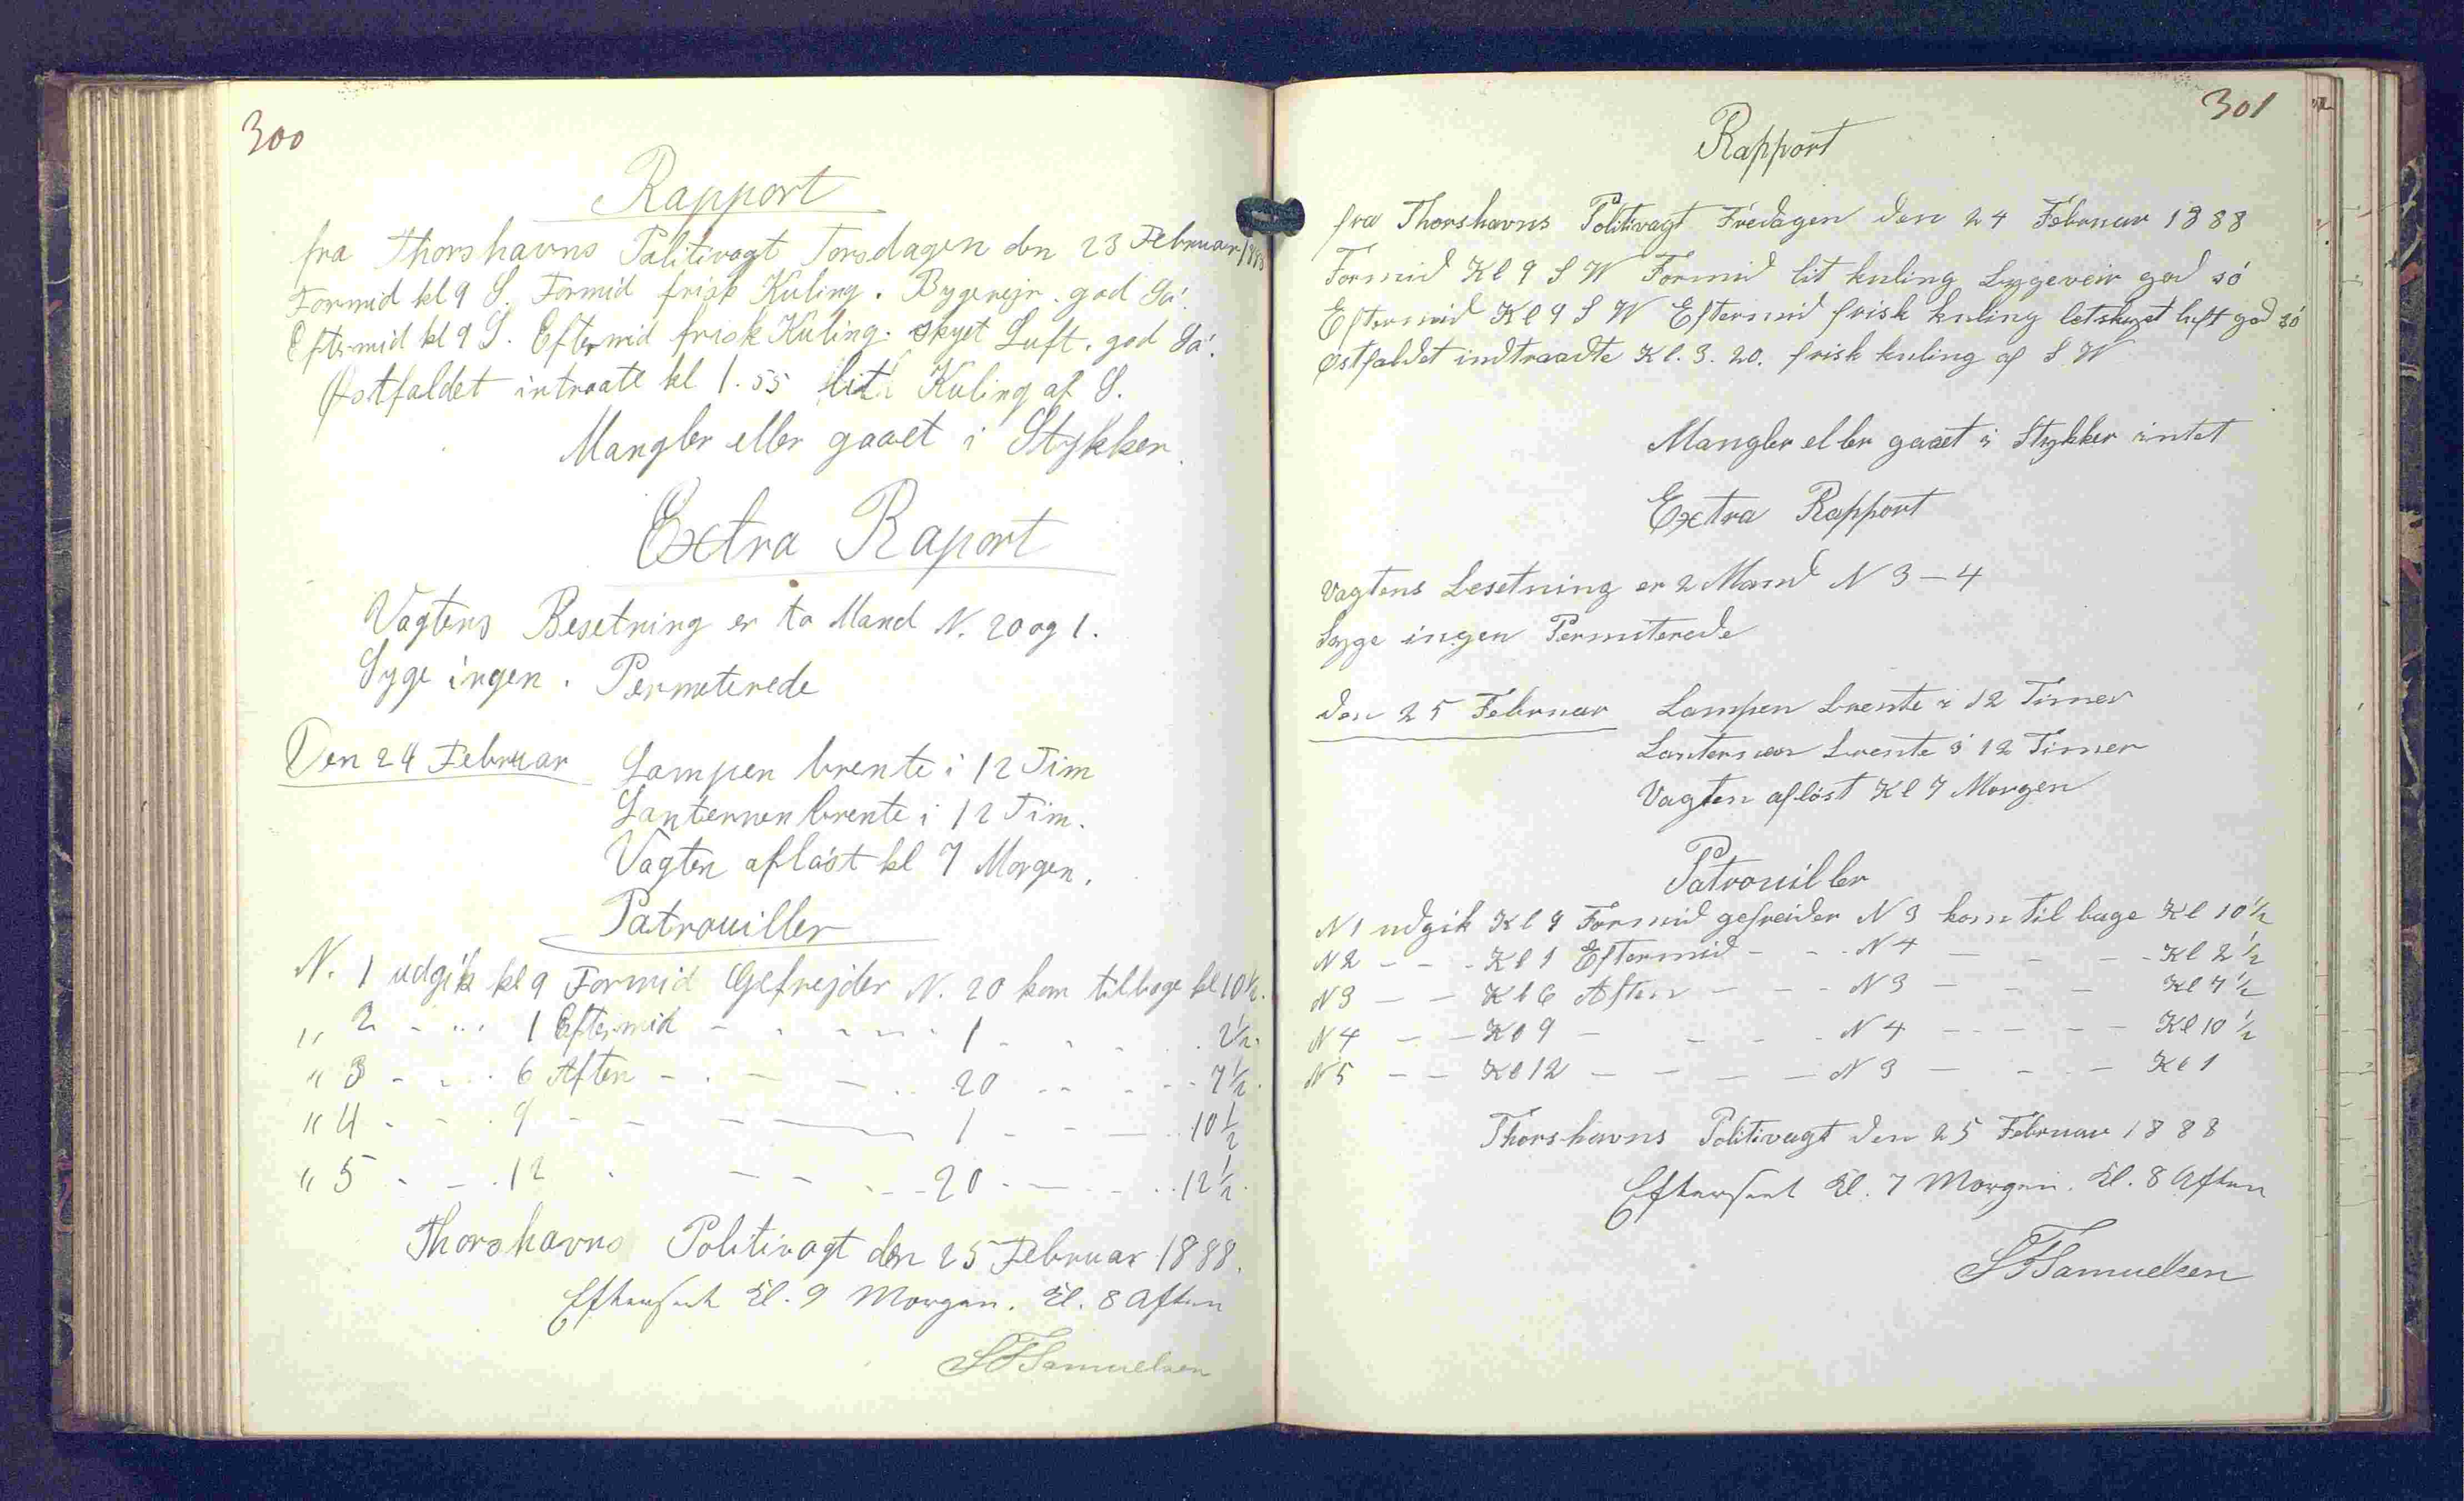 300
Rapport
fra Thorshavns Politivagt Torsdagen den 23 Februar 1888
Formid kl 9 S. Formid frisk Kuling. Bygevejr. god Sö.
Eftermid kl 9 S. Eftermid frisk Kuling. Skyet Luft. god Sö.
Østfaldet intraate kl 1.55 lit Kuling af S.
Mangler eller gaaet i Stykker.
Extra Raport
Vagtens Besetning er to Mand N. 20 og 1.
Syge ingen. Permeterede
Den 24 Februar Lampen brente i 12 Tim
Lanternen brente i 12 Tim.
Vagten afløst kl 7 Morgen.
Patrouiller
N. 1 udgik kl 9 Formid Gefrejder N. 20 kom tilbage kl 10½.
" 2 - - - 1 Eftermid - - - - - 1 - - - - 2½.
" 3 - - - 6 Aften - - - - 20 - - - - 7½.
" 4 - - - 9 - - - - 1 - - - 10½
" 5 - - - 12 - - - - - 20 - - - - 12½.
Thorshavns Politivagt den 25 Februar 1888.
Efterseet Kl. 9 Morgen. Kl. 8 Aften
SFSamuelsen
301
Rapport
fra Thorshavns Politivagt Fredagen den 24 Februar 1888
Formid Kl 9 S W Formid lit kuling Bygeveir god só
Eftermid Kl 9 S W Eftermid frisk kuling letskyet luft god só
Østfaldet indtraadte Kl. 3. 20. frisk kuling af S W
Mangler eller gaaet i Stykker intet
Extra Rapport
Vagtens besetning er 2 Mand N 3 - 4
Syge ingen Permiterede
den 25 Februar Lampen brente i 12 Timer
Lanternen brente i 12 Timer
Vagten afløst Kl 7 Morgen
Patrouiller
N 1 udgik Kl 9 Formid gefreider N 3 kom til bage Kl 10½
N 2 - - - Kl 1 Eftermid - - - N 4 - - - - Kl 2½
N 3 - - Kl 6 Aften - - - N 3 - - - Kl 7½
N 4 - - Kl 9 - - - - N 4 - - - - Kl 10½
N 5 - - Kl 12 - - - - N 3 - - - Kl 1
Thorshavns Politivagt den 25 Februar 1888
Efterseet Kl. 7 Morgen. Kl. 8 Aften
SFSamuelsen